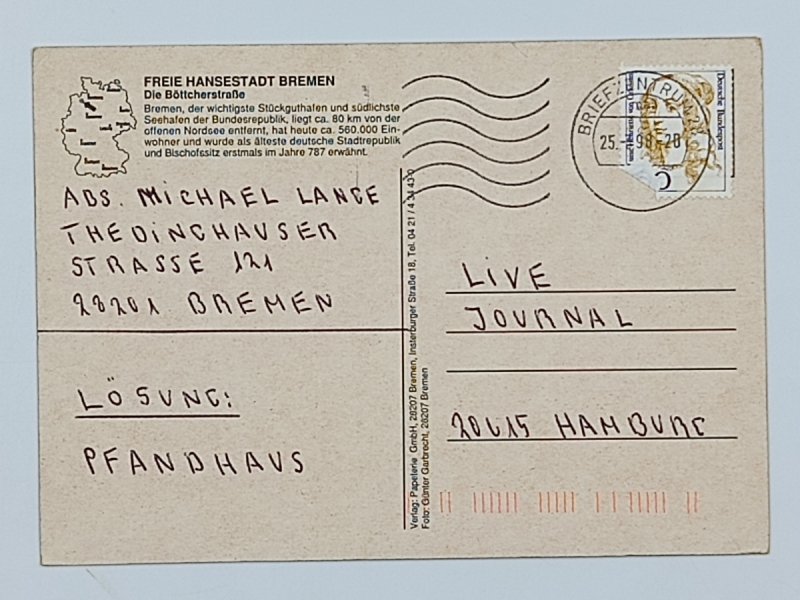 FREIE HANSESTADT BREMEN
Die Böttcherstraße
Bremen, der wichtigste Stückguthafen und südlichste
Seehafen der Bundesrepublik, liegt ca. 80 km von der
offenen Nordsee entfernt, hat heute ca. 560.000 Ein-
wohner und wurde als älteste deutsche Stadtrepublik
und Bischofssitz erstmals im Jahre 787 erwähnt.
ABS. MICHAEL LANGE
THEDINGHAUSER
STRASSE 121
28201 BREMEN
LÖSUNG:
PFANDHAUS
Verlag: Papeterie GmbH, 28207 Bremen, Insterburger Straße 18, Tel. 04 21 / 4 34 43-0
Foto: Günter Garbrecht, 28207 Bremen
BRIEFZENTRUM 28
25. 98-20
Deutsche Bundespost
C
LIVE
JOURNAL
20415 HAMBURG